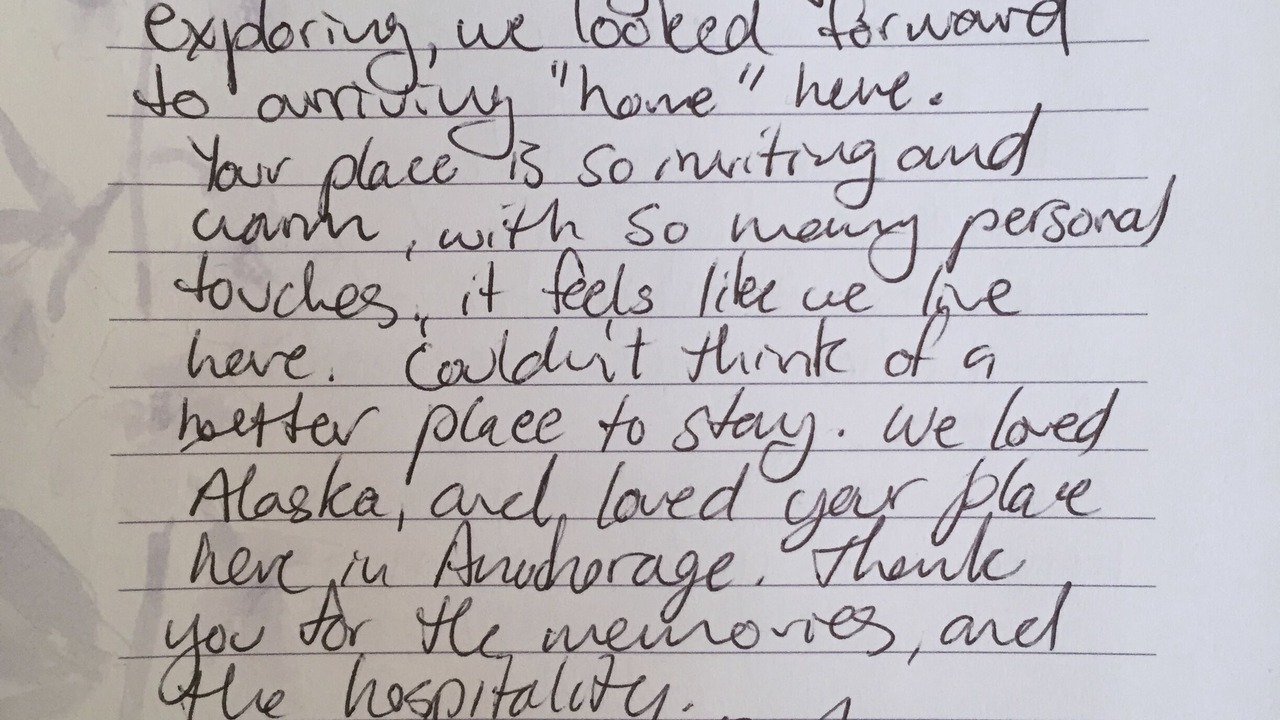 exploring, we looked forward
to arriving "home" here.
Your place is so inviting and
warm, with so many personal
touches, it feels like we live
here. Couldn't think of a
better place to stay. We loved
Alaska, and loved your place
here in Anchorage. Thank
you for the memories, and
the hospitality.